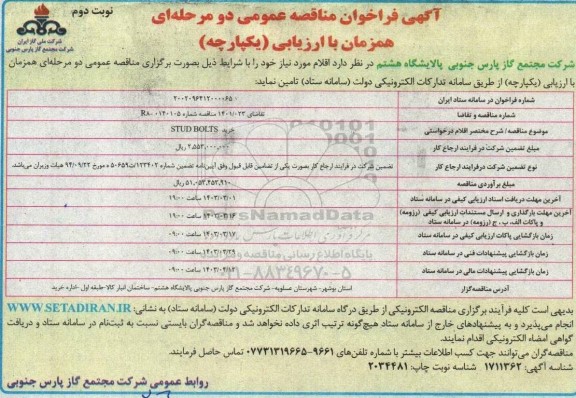 آگهی فراخوان مناقصه عمومی دو مرحله‌ای
همزمان با ارزیابی (یکپارچه)
نوبت دوم
شرکت ملی گاز ایران
شرکت مجتمع گاز پارس جنوبی
شرکت مجتمع گاز پارس جنوبی پالایشگاه هشتم در نظر دارد اقلام مورد نیاز خود را با شرایط ذیل بصورت برگزاری مناقصه عمومی دو مرحله‌ای همزمان
با ارزیابی (یکپارچه) از طریق سامانه تدارکات الکترونیکی دولت (سامانه ستاد) تامین نماید:
شماره فراخوان در سامانه ستاد ایران
شماره مناقصه و تقاضا تقاضای ۱۴۰۱/۰۲۳ مناقصه شماره R۸۰۰۱۴۰۱۰۵
موضوع مناقصه / شرح مختصر اقلام درخواستی خرید STUD BOLTS
مبلغ تضمین شرکت در فرایند ارجاع کار ۲,۵۵۳,۰۰۰,۰۰۰ ریال
نوع تضمین شرکت درفرایند ارجاع کار تضمین شرکت در فرایند ارجاع کار بصورت یکی از تضامین قابل قبول وفق آیین‌نامه تضمین شماره ۱۲۳۴۰۲/ت۵۰۶۵۹ه مورخ ۹۴/۰۹/۲۲ هیات وزیران می‌باشد.
مبلغ برآوردی مناقصه ۵۱,۰۵۳,۲۵۳,۹۱۰ ریال
آخرین مهلت دریافت اسناد ارزیابی کیفی در سامانه ستاد ۱۴۰۲/۰۳/۰۱ ساعت ۱۹:۰۰
آخرین مهلت بارگذاری و ارسال مستندات ارزیابی کیفی (رزومه)
و پاکات الف، ب ، ج (رزومه) در سامانه ستاد ۱۴۰۲/۰۳/۱۶ ساعت ۱۹:۰۰
زمان بازگشایی پاکات ارزیابی کیفی در سامانه ستاد ۱۴۰۲/۰۳/۱۷ ساعت ۰۹:۰۰
زمان بازگشایی پیشنهادات فنی در سامانه ستاد ساعت ۰۹:۰۰
زمان بازگشایی پیشنهادات مالی در سامانه ستاد ساعت ۰۹:۰۰
آدرس مناقصه‌گزار استان بوشهر- شهرستان عسلویه- شرکت مجتمع گاز پارس جنوبی پالایشگاه هشتم- ساختمان انبار کالا-طبقه اول -اداره خرید
بدیهی است کلیه فرآیند برگزاری مناقصه الکترونیکی از طریق درگاه سامانه تدارکات الکترونیکی دولت (سامانه ستاد) به نشانی: WWW.SETADIRAN.IR
انجام می‌پذیرد و به پیشنهادهای خارج از سامانه ستاد هیچ‌گونه ترتیب اثری داده نخواهد شد و مناقصه‌گران بایستی نسبت به ثبت‌نام در سامانه ستاد و دریافت
گواهی امضاء الکترونیکی اقدام نمایند.
مناقصه‌گران می‌توانند جهت کسب اطلاعات بیشتر با شماره تلفن‌های ۹۶۶۱-۰۷۷۳۱۳۱۹۶۶۵ تماس حاصل فرمایند.
شناسه آگهی: ۱۷۱۱۳۶۲ شناسه نوبت چاپ: ۲۰۳۴۴۸۱
روابط عمومی شرکت مجتمع گاز پارس جنوبی